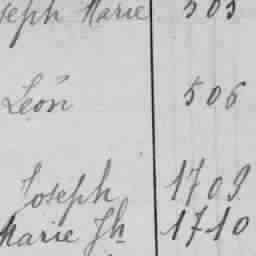 seph Marie 505
Léon 506
Joseph 1709
Marie Jh 1710